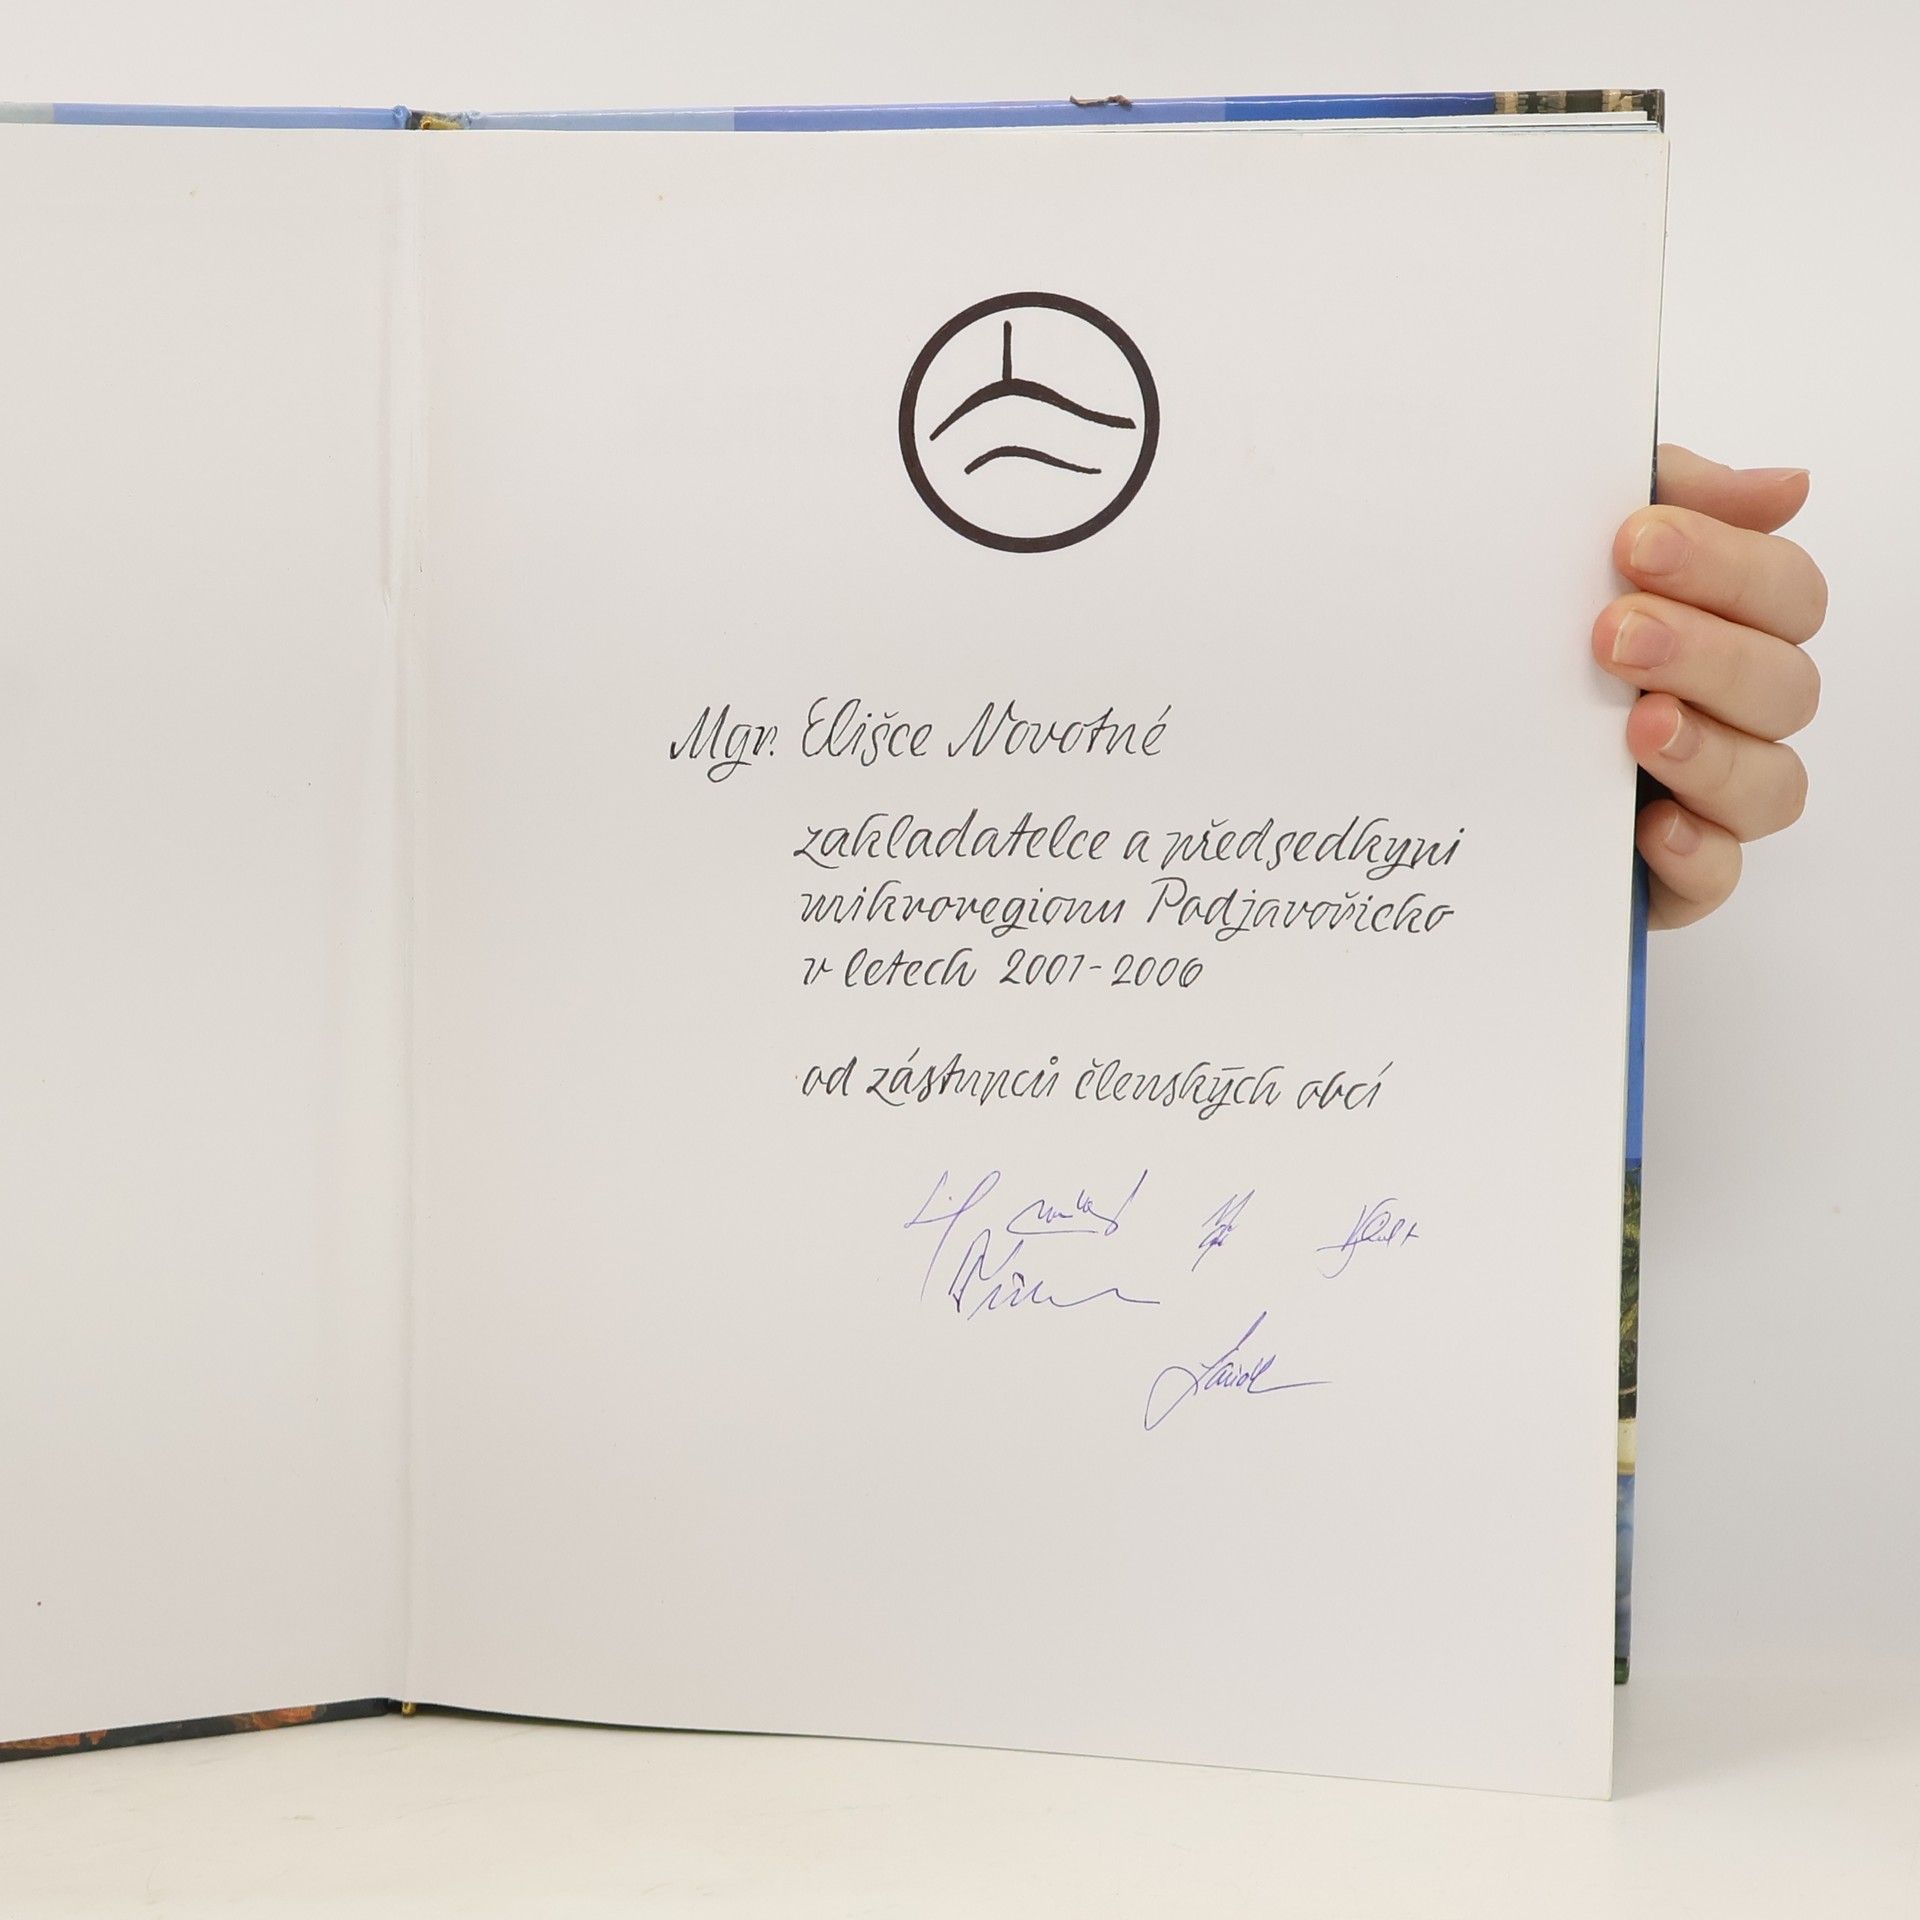 Mgr. Elišce Novotné
zakladatelce a předsedkyni
mikroregionu Podjavořicko
v letech 2001-2006
od zástupců členských obcí